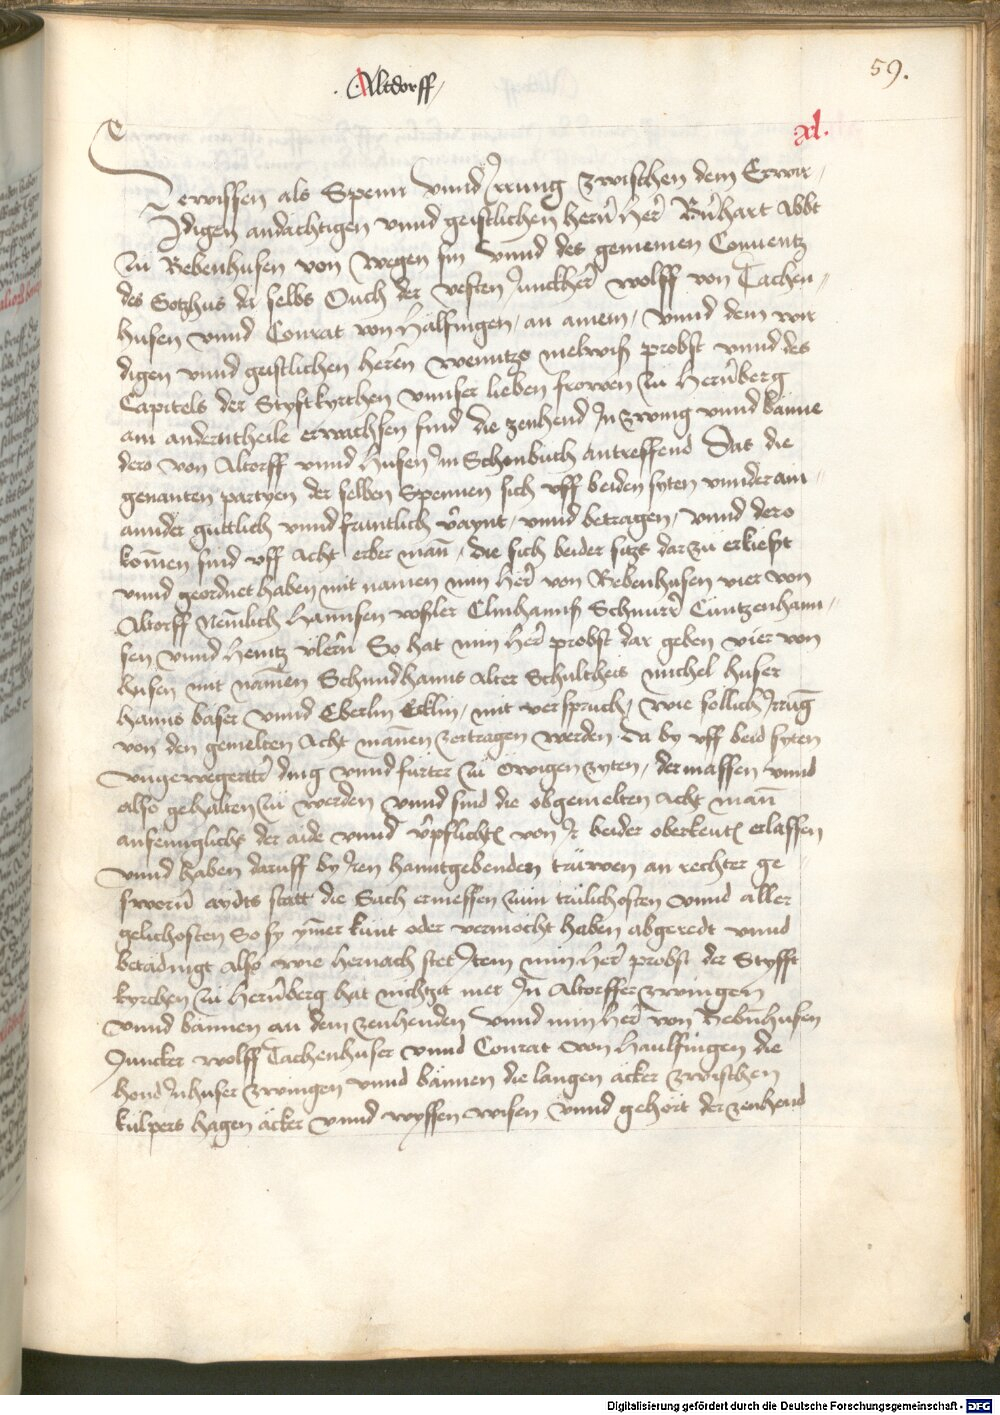 59.
Altdorff
xl.
Zewissen als Spenn vnnd Jrrung zwischen dem Erwir
digen andächtigen vnnd geistlichen hern̄ her̄ Bn̄hart Abbt
zu Bebenhusen von wegen sin vnnd des gemeinen Conuentz
des Gotzhus der selbs Ouch der vesten Junckher̄ wolff von Tachen
husen vnnd Conrat von Hälfingen, an ainem, vnnd dem wir
digen vnnd geistlichen herēn probst vnnd des
Capitels der Styftkyrchen vnnser lieben frowen zu Hern̄berg
am anderntheile erwachsen sind die zenhend Jn zwing vnnd bänne
dero von Altorff vnnd husen Jm Schonbuch antreffend Das die
genanten partyen der selben Spennen sich vff beiden syten vnnderain
annder güttlich vnnd früntlich v̄aynt, vnnd betragen, vnnd dero
kom̄en sind vff Acht erber man̄, die sich beider sitzs dar zu erkießt
vnnd geordnet haben mit namen min her̄ von Bebenhusen vier von
Altorff Nem̄lich Hannsen voßler Clinhannß Schnurr̄ Cüntzenhann
sen vnnd Heintz vlern̄ So hat min her̄ probst dar geben vier von
husen mit nam̄en Schmidhanns Alter Schultheis michel huser
Hanns baser vnnd Eberlin Ecklin, mit verspruch, wie söllich Jrrūg
von den gemelten Acht mān̄en zertragen werden da by vff beid syten
vngewegertt̄ ding vnnd fürter zu Ewigen zyten, der massen vnnd
also gehalten zu werden vnnd sind die obgemelten Acht man̄
anfenngklichs der aide vnnd v̄pflicht von Jr beider oberkeit erlassen
vnnd haben daruff by Jren hanntgebenden trüwen an rechter ge
sworn̄ aydts statt die Sach ermessen zum trülichosten vnnd aller
gelichosten So sy ym̄er künt oder vermöcht haben abgeredt vnnd
betädingt also wie hernach stet Jtem min her̄ probst der Styfft
kyrchen zu Hern̄berg hat nichtzit mer Jn Altorffer zwingen
vnnd bännen an dem zenhenden vnnd min her̄ von Bebn̄husen
Juncker wolff Tachenhuser vnnd Conrat von Haulfingen die
hond Jn huser zwingen vnnd bännen die langen äcker zwischen
külpers hagen äcker vnnd wyssen wisen vnnd gehört der zenhend
Digitalisierung gefördert durch die Deutsche Forschungsgemeinschaft - DFG